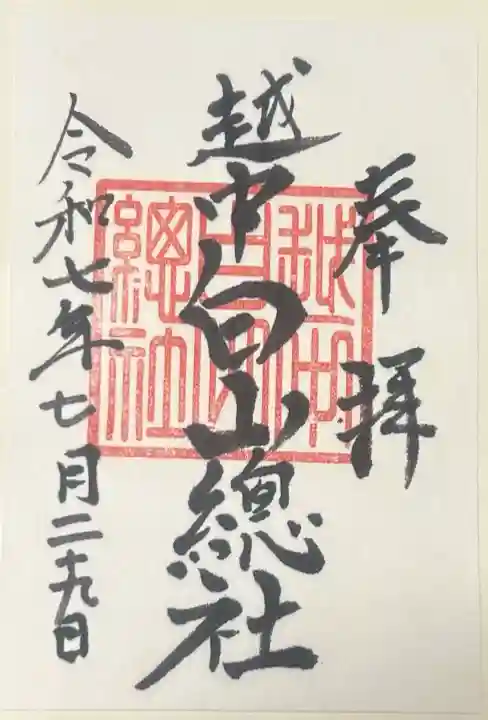 奉拝
越中白山總社
越中白山總社
令和七年七月二十九日